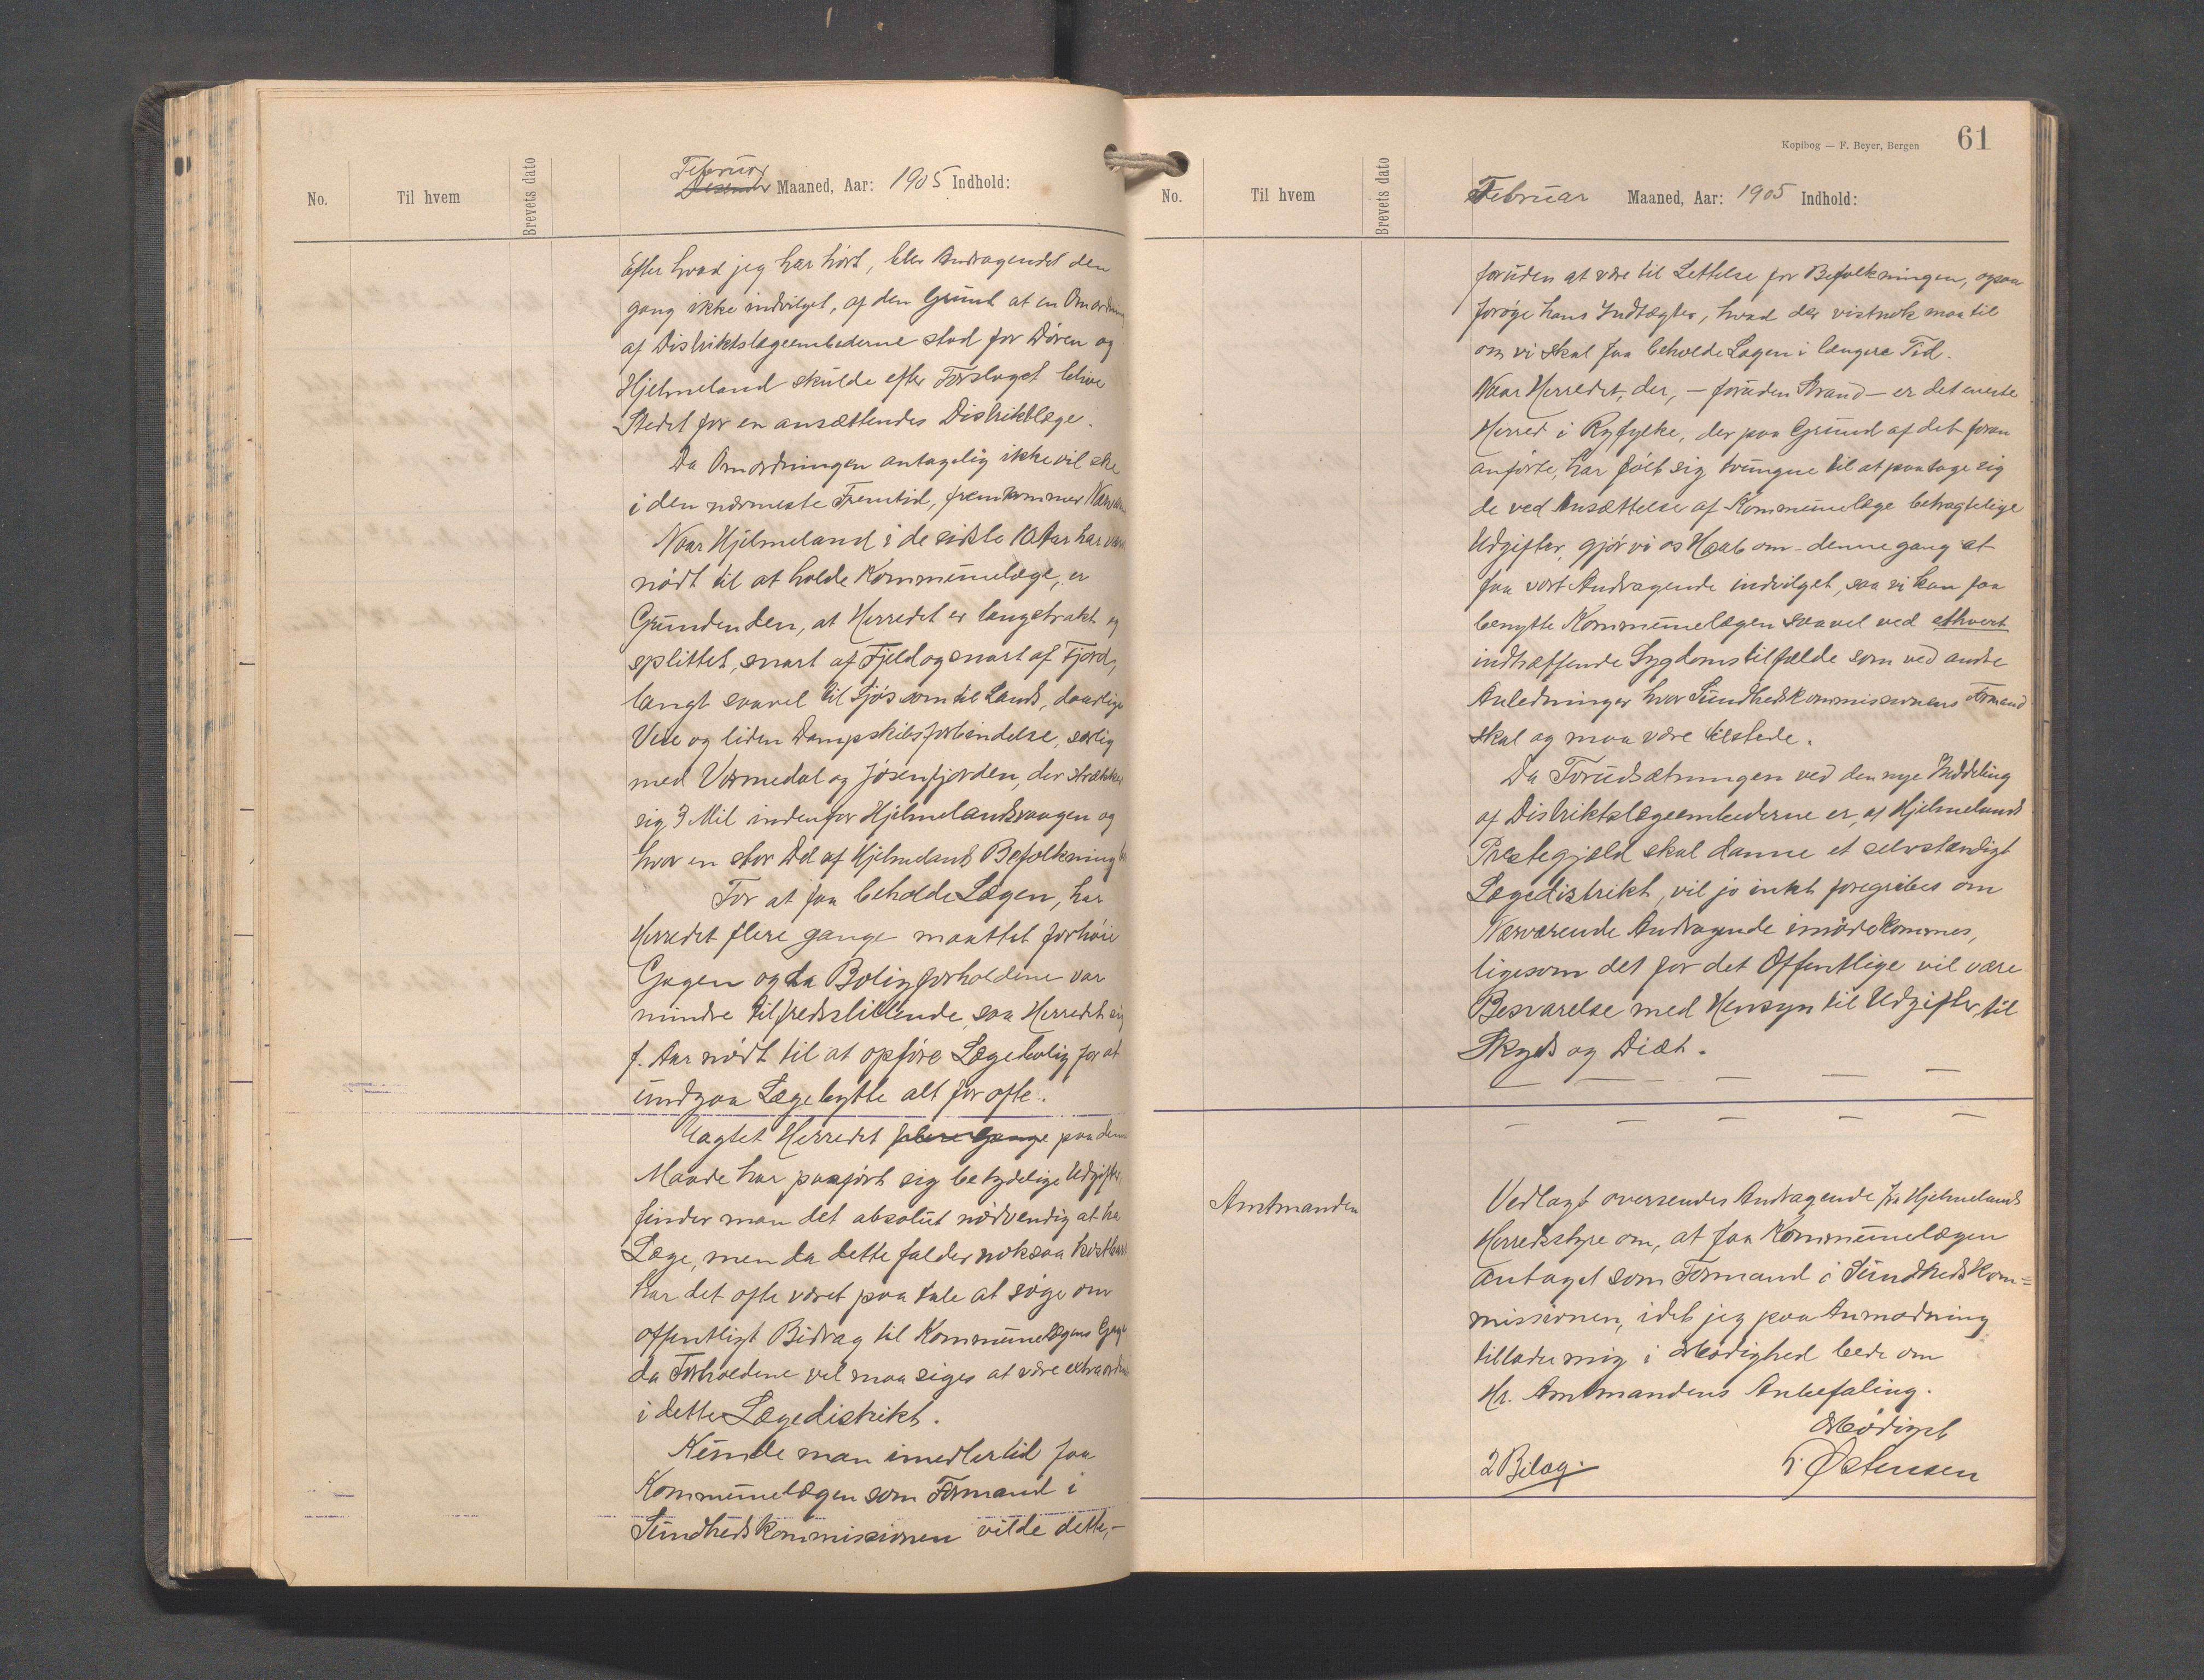 No.
Til hvem
Brevets dato
Februar
Maaned, Aar: 1905 Indhold:
Efter hvad jeg har hört, blev Andragendet den
gang ikke indvilget, af den Grund at en Omordning
af Distriktslægeembederne stod for Døren og
Hjelmeland skulde efter Forslaget blive
Stedet for en ansættendes Distriktlæge.
Da Omordningen antagelig ikke vil ske
i den nærmeste Fremtid, fremkommer
Naar Hjelmeland i de sidste 10 Aar har
nödt til at holde Kommunelæge, er
Grunden den, at Herredet er langstrakt og
splittet, snart af Fjeld og snart af Fjord,
langt saavel til Sjös som til Lands, daarlige
Veie og liden Dampskibsforbindelse, særlig
med Vormedal og Jösenfjorden, der strækker
sig 3 Mil indenfor Hjelmelandsvaagen og
hvor en stor Del af Hjelmelands Befolkning
For at faa beholde Lægen, har
Herredet flere gange maattet forhöie
Gagen og da Boligforholdene var
mindre tilfredsstillende, saa Herredet sig
f. Aar nödt til at opföre Lægebolig for at
undgaa Lægebytte alt for ofte.
Uagtet Herredet flere Gange paa denne
Maade har paaført sig betydelige Udgifter,
finder man det absolut nödvendig at ha
Læge, men da dette falder noksaa kostbart
har det ofte været paa tale at söge om
offentligt Bidrag til Kommunelægens Gage
da Forholdene vel maa siges at være extraordin
i dette Lægedistrikt.
Kunde man imedlertid faa
Kommunelægen som Formand i
Sundhedskommissionen vilde dette,-
Kopibog — F. Beyer, Bergen
61
No.
Til hvem
Brevets dato
Februar Maaned, Aar: 1905 Indhold:
foruden at være til Lettelse for Befolkningen, ogsaa
forøge hans Indtægter, hvad der vistnok maa til
om vi skal faa beholde Lægen i længere Tid.
Naar Herredet, der, - foruden Strand - er det eneste
Herred i Ryfylke, der paa Grund af det foran
anførte, har følt sig tvungne til at paatage sig
de ved Ansættelse af Kommunelæge betragtelige
Udgifter, gjör vi os Haab om - denne gang at
faa vort Andragende indvilget, saa vi kan faa
benytte Kommunelægen saavel ved ethvert
indtræffende Sygdomstilfælde som ved andre
Anledninger hvor Sundhedskommissionens Formand
skal og maa være tilstede.
Da Forudsætningen ved den nye Inddeling
af Distriktslægeembederne er, at Hjelmelands
Prestegjæld skal danne et selvstændigt
Lægedistrikt, vil jo intet foregribes om
Nærværende Andragende imödekommes,
ligesom det for det Offentlige vil være
Besvarelse med Hensyn til Udgifter, til
Skyds og Diæt.
Amtmanden
Vedlagt oversendes Andragende fra Hjelmelands
Herredsstyre om, at faa Kommunelægen
antaget som Formand i Sundhedskom=
missionen, idet jeg paa Anmodning
tillader mig i Ærbødighed bede om
Hr. Amtmandens Anbefaling.
Ærbødigst
2 Bilag.
Østensen